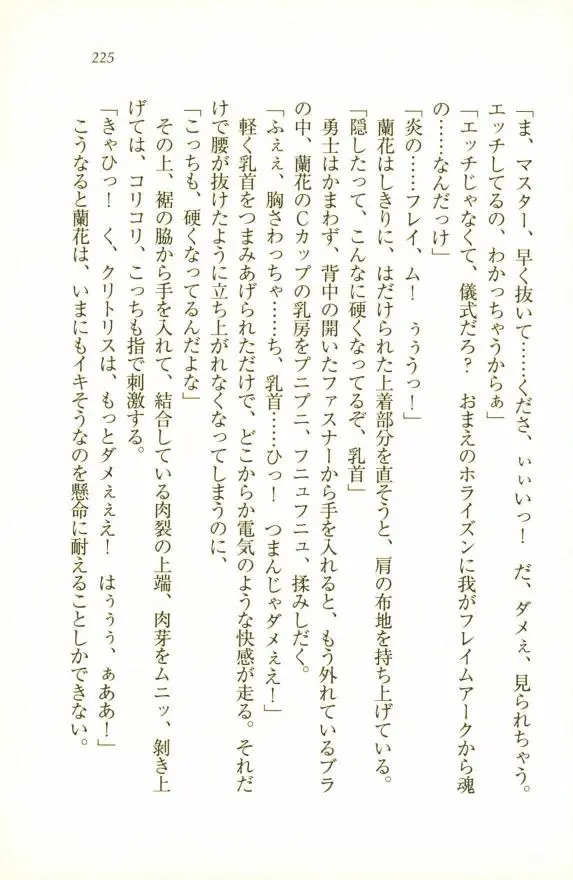 225
「ま、マスター、早く抜いて……くださ、ぃぃいっ！　だ、ダメぇ、見られちゃう。
エッチしてるの、わかっちゃうからぁ」
「エッチじゃなくて、儀式だろ？　おまえのホライズンに我がフレイムアークから魂
の……なんだっけ」
「炎の……フレイ、ム！　ぅううっ！」
蘭花はしきりに、はだけられた上着部分を直そうと、肩の布地を持ち上げている。
「隠したって、こんなに硬くなってるぞ、乳首」
勇士はかまわず、背中の開いたファスナーから手を入れると、もう外れているブラ
の中、蘭花のCカップの乳房をプニプニ、フニュフニュ、揉みしだく。
「ふぇぇ、胸さわっちゃ……ち、乳首……ひっ！　つまんじゃダメぇえ！」
軽く乳首をつまみあげられただけで、どこからか電気のような快感が走る。それだ
けで腰が抜けたように立ち上がれなくなってしまうのに、
「こっちも、硬くなってるんだよな」
その上、裾の脇から手を入れて、結合している肉裂の上端、肉芽をムニッ、剝き上
げては、コリコリ、こっちも指で刺激する。
「きゃひっ！　く、クリトリスは、もっとダメぇぇえ！　はぅぅう、ぁああ！」
こうなると蘭花は、いまにもイキそうなのを懸命に耐えることしかできない。